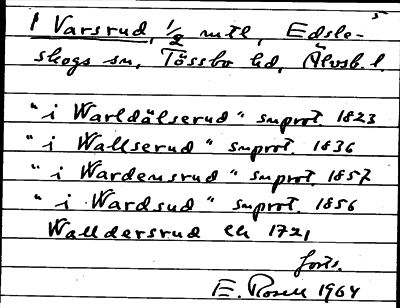 Varsrud, 1/2 mtl, Edsle-
skogs sn, Tössbo hd, Älvsb. l.
"i Warldälserud" snprot. 1823
"i Wallserud" snprot. 1836
"i Wardensrud" snprot. 1857
"i Wardsud" snprot. 1856
Walldersrud ek 1721
forts.
E. Rosell 1964